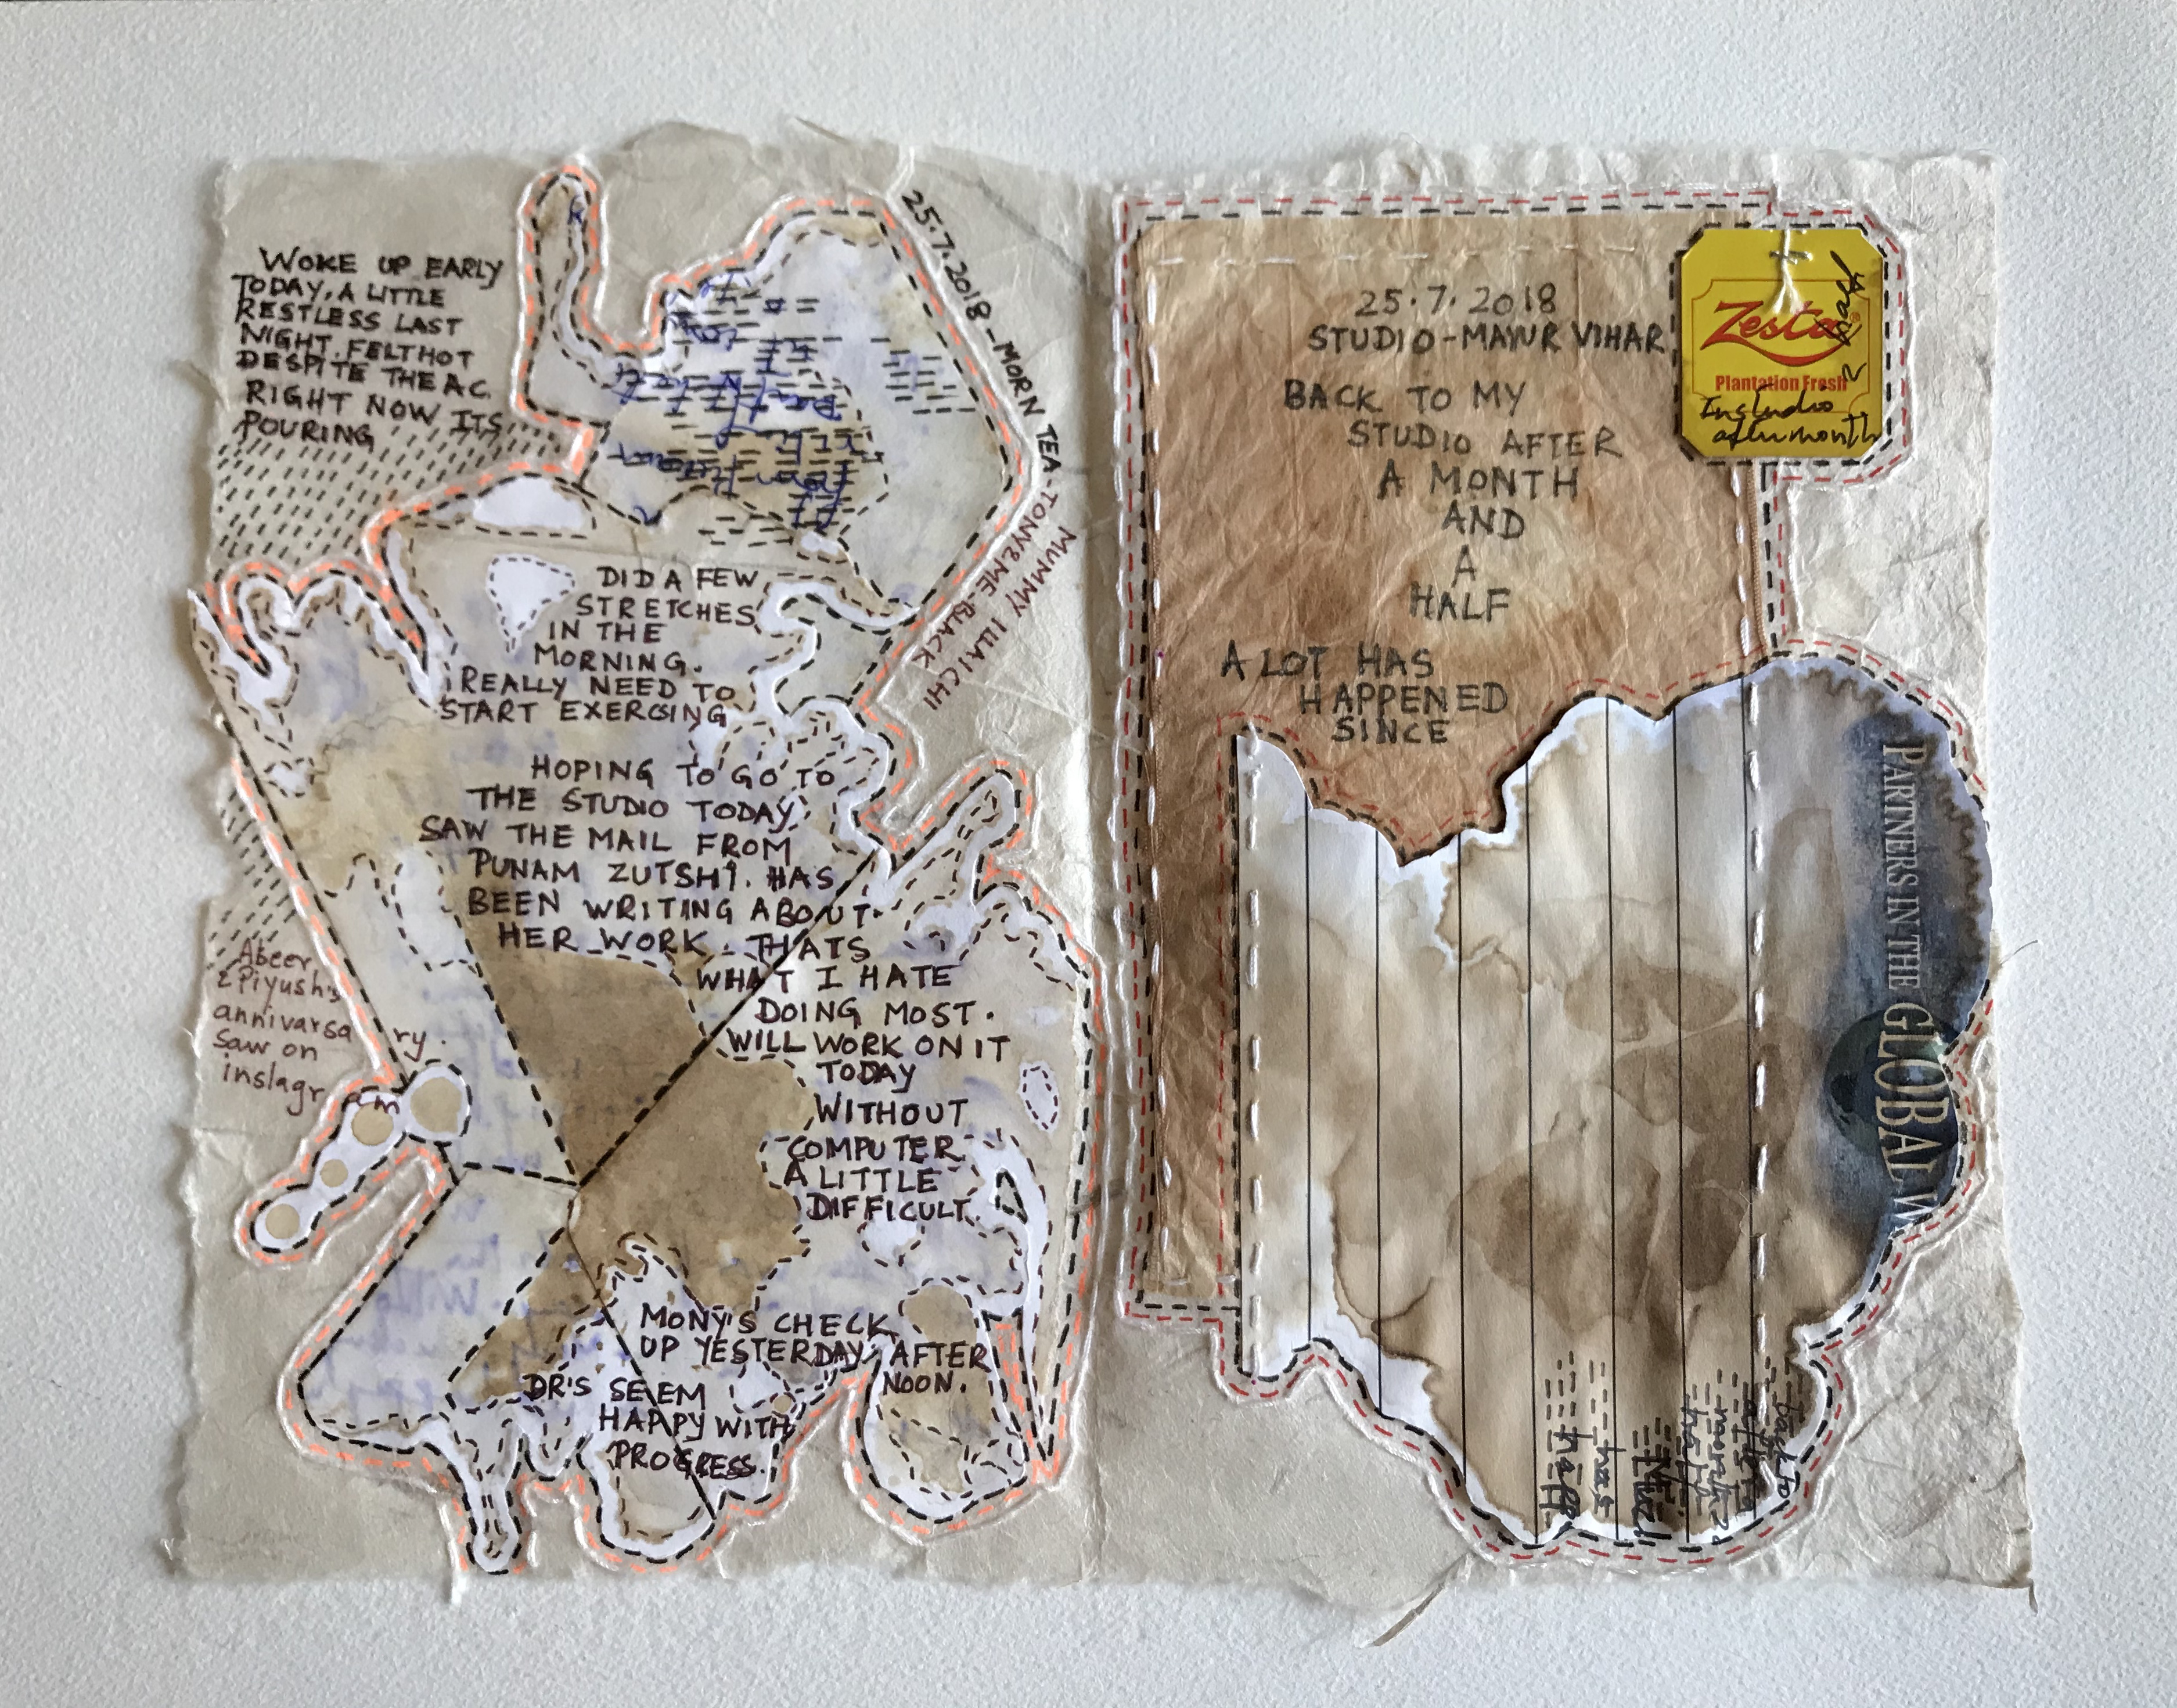 WOKE UP EARLY
TODAY, A LITTLE
RESTLESS LAST
NIGHT. FELT HOT
DESPITE THE A.C.
RIGHT NOW ITS
POURING
25.7.2018 - MORN TEA - TONY & ME - BLACK
MUMMY ILLAICHI
DID A FEW
STRETCHES
IN THE
MORNING.
REALLY NEED TO
START EXERCISING
HOPING TO GO TO
THE STUDIO TODAY.
SAW THE MAIL FROM
PUNAM ZUTSHI. HAS
BEEN WRITING ABOUT
HER WORK. THATS
WHAT I HATE
DOING MOST.
WILL WORK ON IT
TODAY
WITHOUT
COMPUTER
A LITTLE
DIFFICULT.
Abeer
& Piyush's
annivarsary.
saw on
instagram
MONY'S CHECK
UP YESTERDAY AFTER
NOON.
DR'S SEEM
HAPPY WITH
PROGRESS.
25.7.2018
STUDIO - MAYUR VIHAR
BACK TO MY
STUDIO AFTER
A MONTH
AND
A
HALF
A LOT HAS
HAPPENED
SINCE
Zesta®
Plantation Fresh
In studio
after month
& half
PARTNERS IN THE GLOBAL W
back to
after a
month &
half.
has